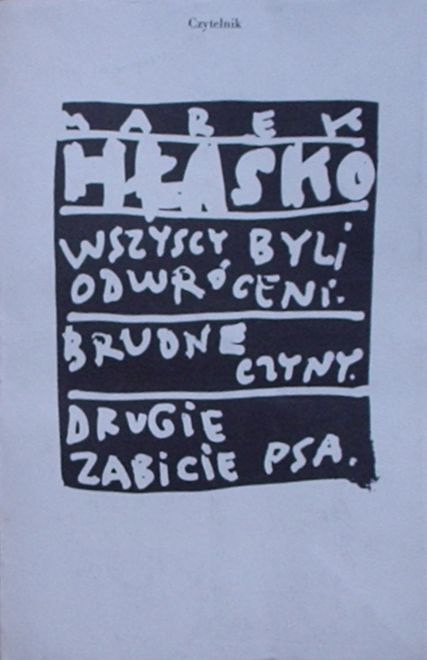 Czytelnik
MAREK
HŁASKO
WSZYSCY BYLI
ODWRÓCENI.
BRUDNE
CZYNY.
DRUGIE
ZABICIE PSA.